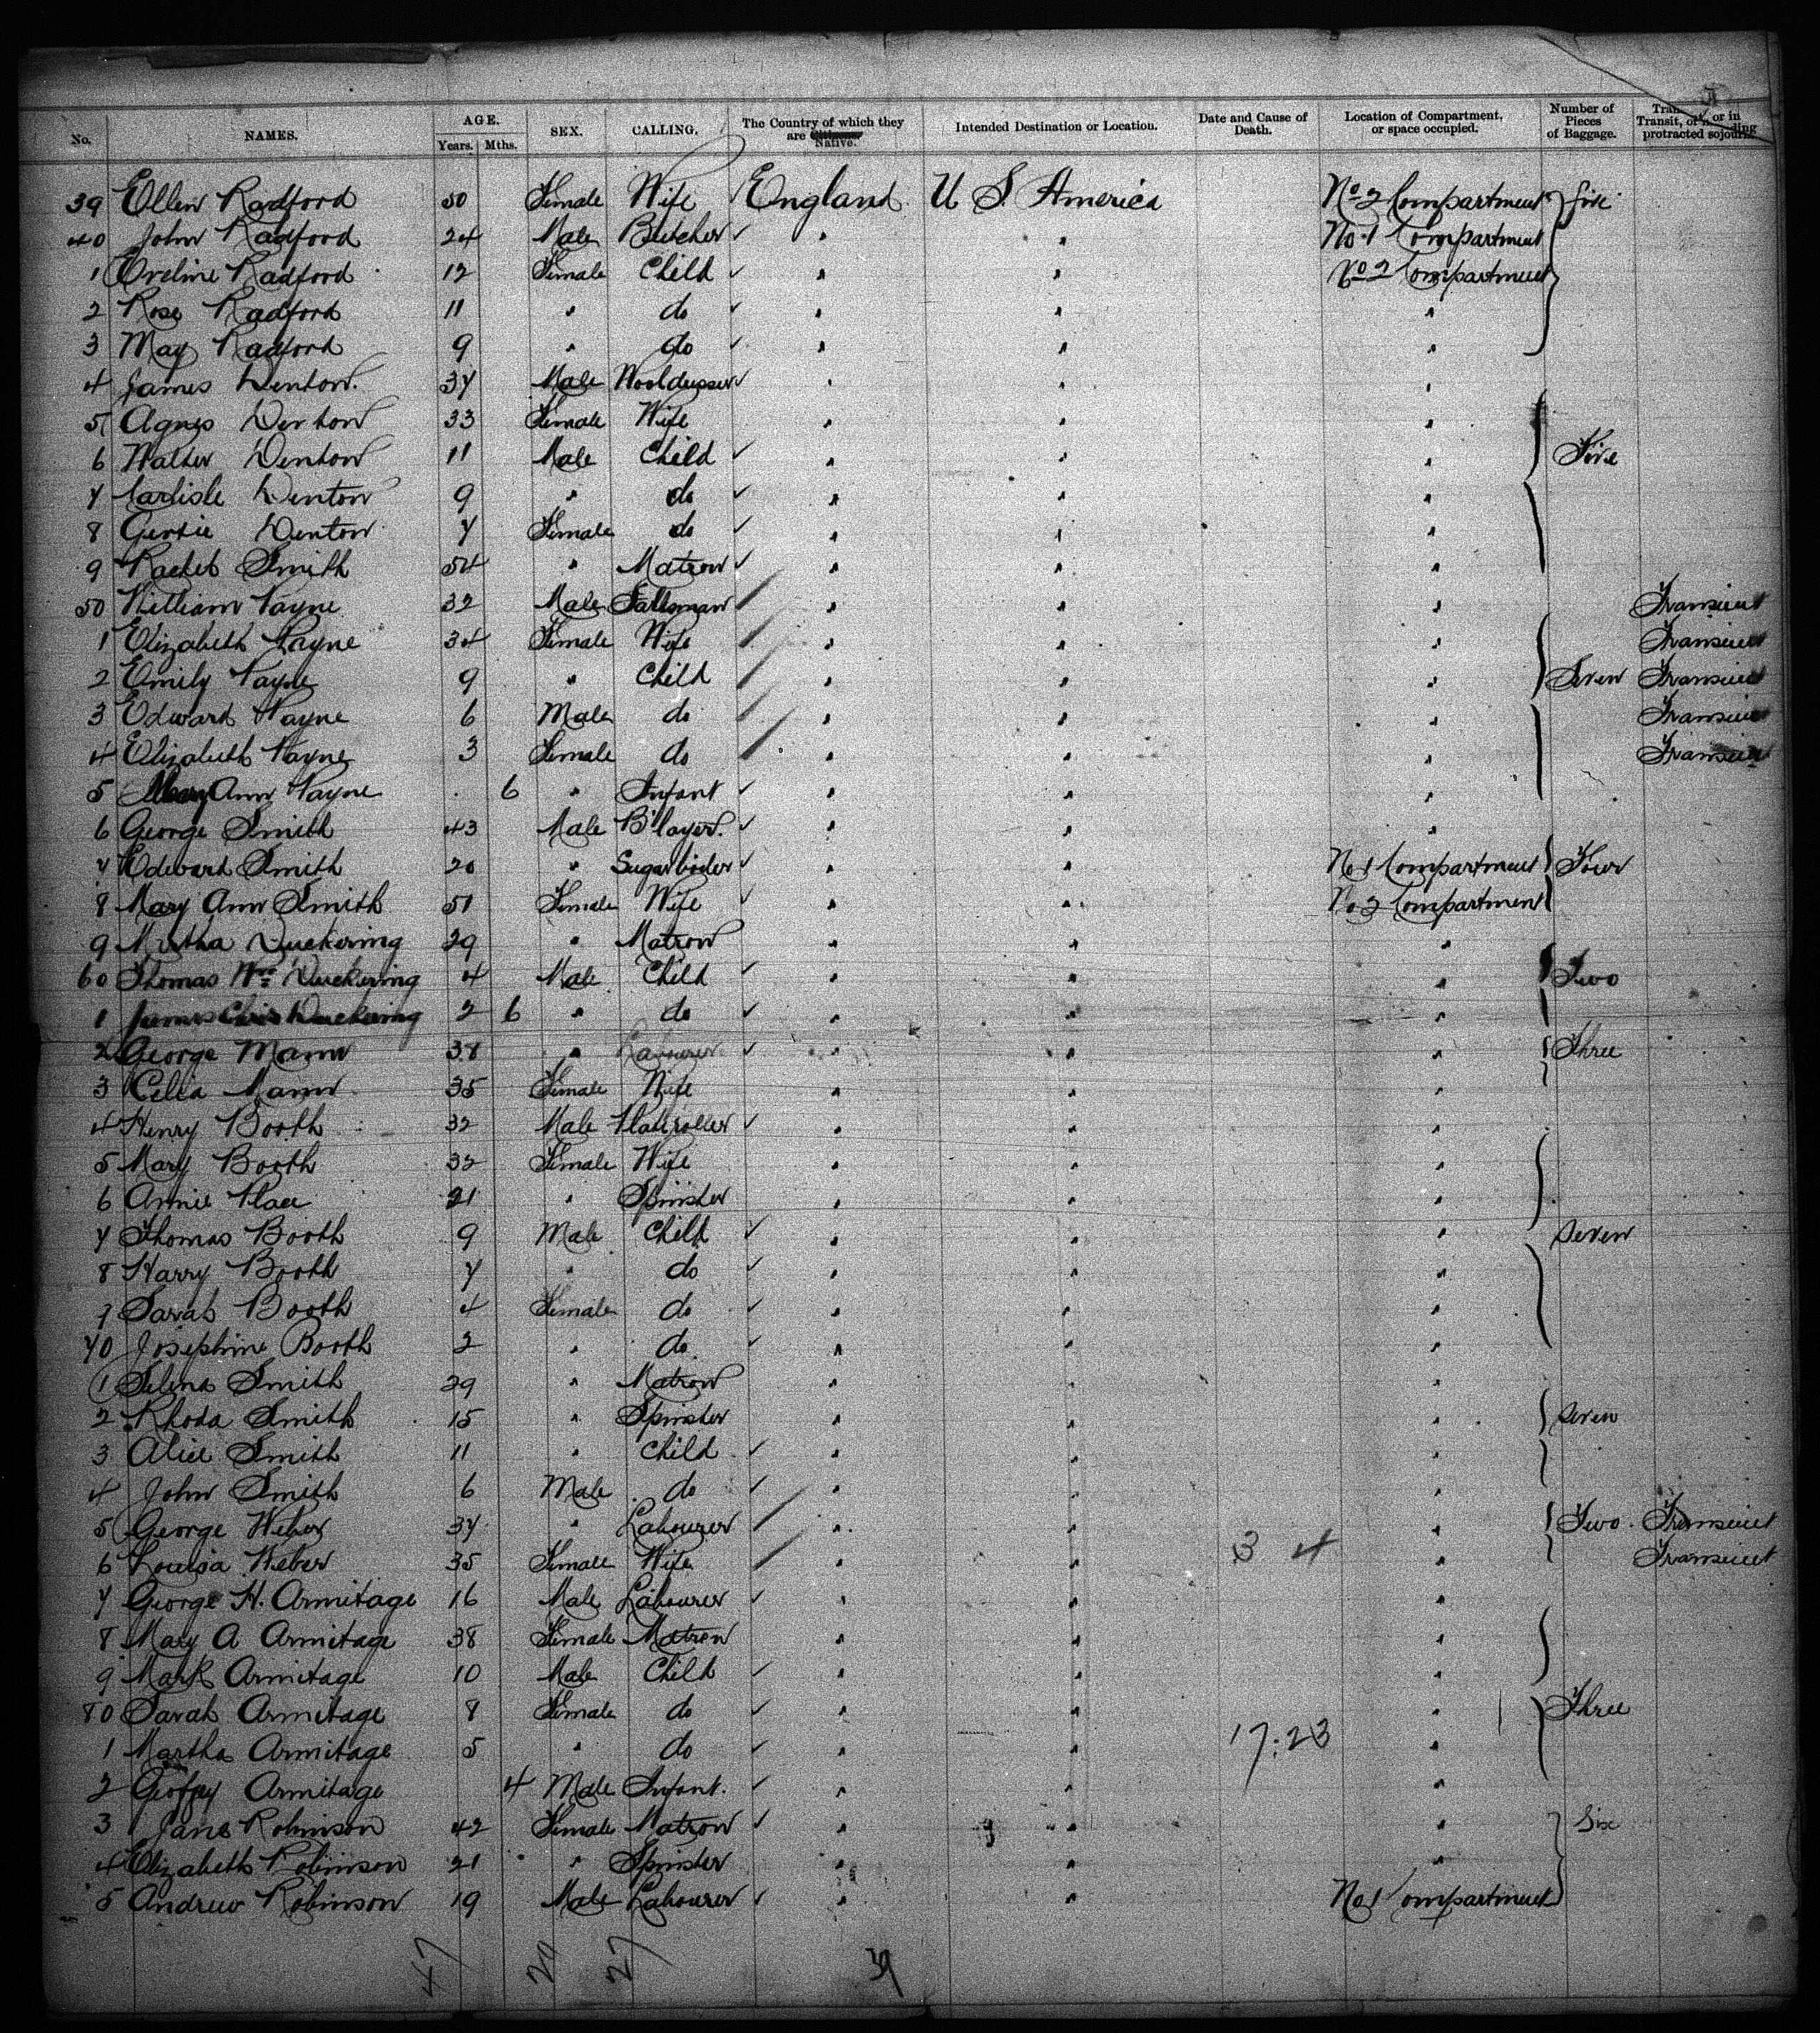 No. NAMES. AGE. Years. Mths. SEX. CALLING. The Country of which they are Native. Intended Destination or Location. Date and Cause of Death. Location of Compartment, or space occupied. Number of Pieces of Baggage. Transit, or in protracted sojourn
39 Ellen Radford 50 Female Wife England U S. America No 2 Compartment five
40 John Radford 24 Male Butcher " " No 1 Compartment
1 Eveline Radford 12 Female Child " " No 2 Compartment
2 Rose Radford 11 " do " " "
3 May Radford 9 " do " " "
4 James Denton 34 Male " " "
5 Agnes Denton 33 Female Wife " " "
6 Walter Denton 11 Male Child " " " Five
7 Carlisle Denton 9 " do " " "
8 Gertie Denton 7 Female do " " "
9 Rachel Smith 54 " Matron " " "
50 William Payne 32 Male Salesman " " " Transient
1 Elizabeth Payne 34 Female Wife " " " Transient
2 Emily Payne 9 " Child " " " Seven Transient
3 Edward Payne 6 Male do " " " Transient
4 Elizabeth Payne 3 Female do " " " Transient
5 Mary Ann Payne 6 " Infant " " "
6 George Smith 43 Male B'layer. " " "
7 Edward Smith 20 " Sugarboiler " " No 1 Compartment Four
8 Mary Ann Smith 51 Female Wife " " No 2 Compartment
9 Martha Duckering 29 " Matron " " "
60 Thomas Wm Duckering 4 Male Child " " " Two
1 James Duckering 2 6 " do " " "
2 George Mann 38 " Labourer " " " Three
3 Celia Mann 35 Female Wife " " "
4 Henry Booth 32 Male Plateroller " " "
5 Mary Booth 32 Female Wife " " "
6 Annie Place 21 " Spinster " " "
7 Thomas Booth 9 Male Child " " " Seven
8 Harry Booth 7 " do " " "
9 Sarah Booth 4 Female do " " "
70 Josephine Booth 2 " do " " "
1 Selina Smith 39 " Matron " " "
2 Rhoda Smith 15 " Spinster " " " Seven
3 Alice Smith 11 " Child " " "
4 John Smith 6 Male do " " "
5 George Weber 37 " Labourer " " " Two Transient
6 Louisa Weber 35 Female Wife " " 3 4 " Transient
7 George H. Armitage 16 Male Labourer " " "
8 Mary A Armitage 38 Female Matron " " "
9 Mark Armitage 10 Male Child " " "
80 Sarah Armitage 8 Female do " " " Three
1 Martha Armitage 5 " do " " 17:23 "
2 Armitage 4 Male Infant. " " "
3 Jane Robinson 42 Female Matron " " " Six
4 Elizabeth Robinson 21 " Spinster " " "
5 Andrew Robinson 19 Male Labourer " " No 1 Compartment
47 20 27 39